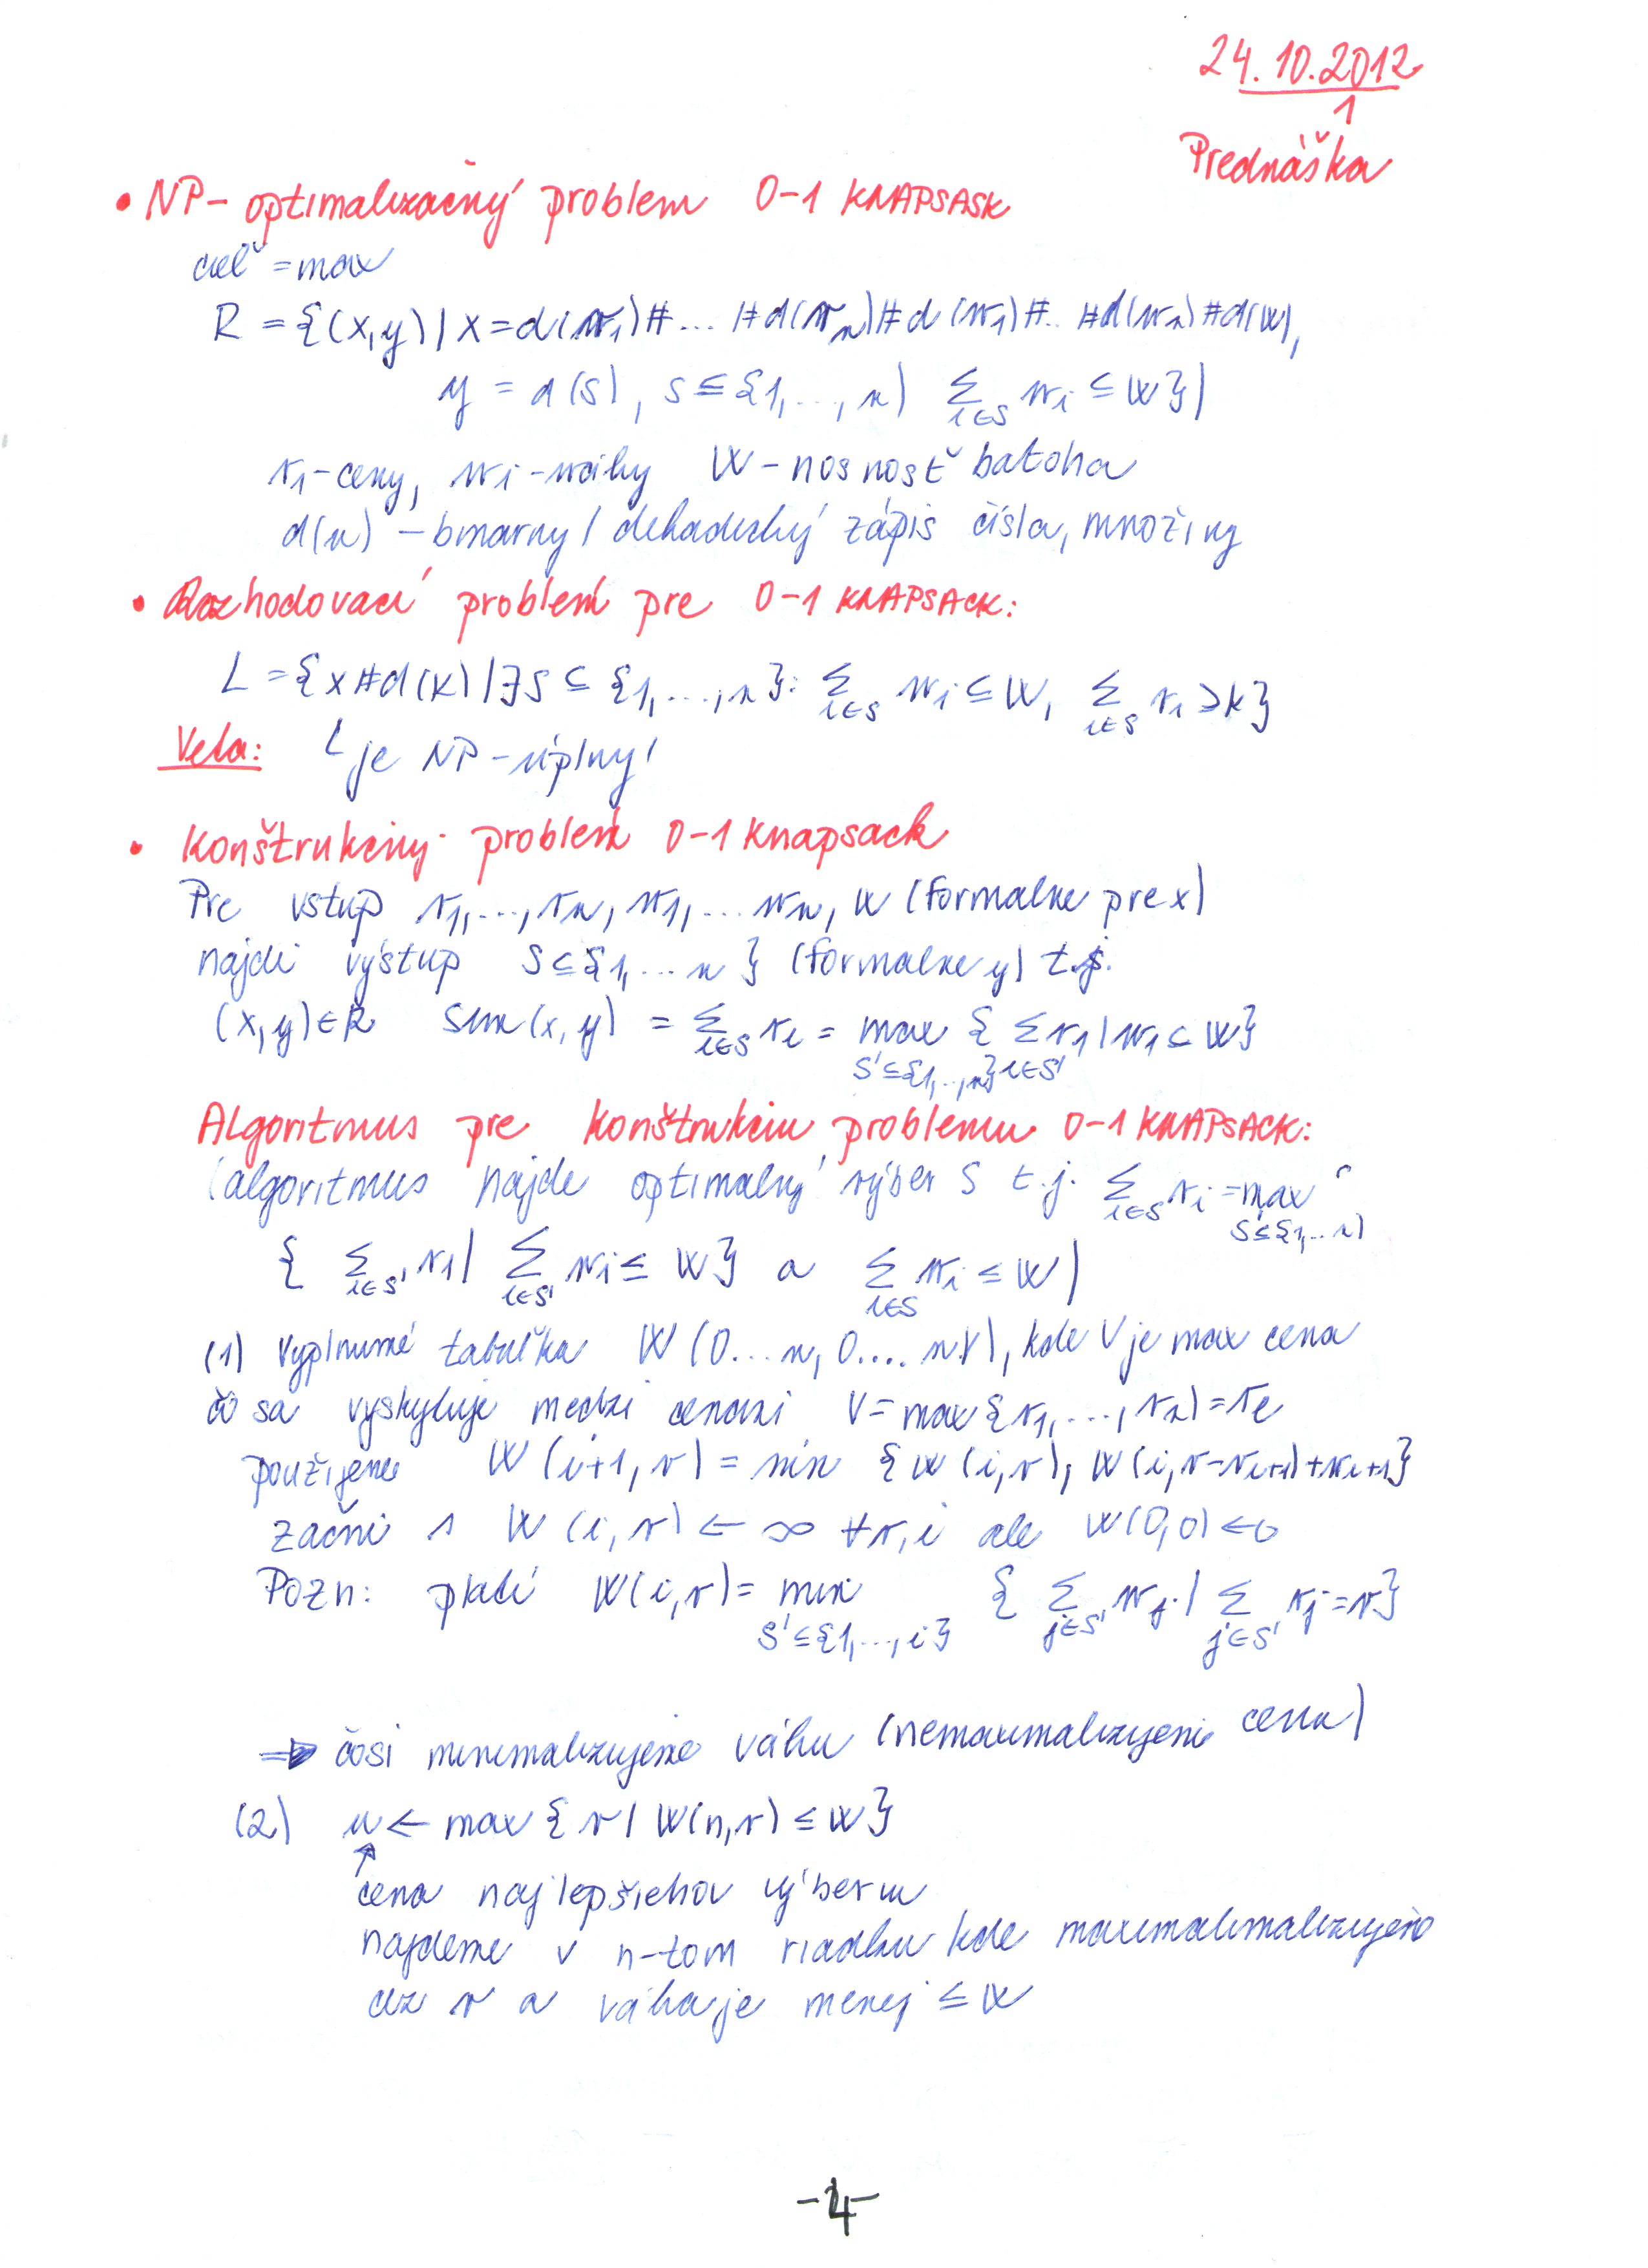 24.10.2012
1
Prednáška
• NP-optimalizačný problem 0-1 KNAPSASK
cieľ = max
R = {(x,y) | x = d(v₁)#...#d(vₙ)#d(w₁)#..#d(wₙ)#d(W),
y = d(S), S ⊆ {1,...,n) ∑_{i∈S} wᵢ ≤ W})
v₁-ceny, wᵢ-váhy W-nosnosť batoha
d(n) - binarny / dekadický zápis čísla, množiny
• Rozhodovací problém pre 0-1 KNAPSACK:
L = {x#d(k) | ∃S ⊆ {1,...,n}: ∑_{i∈S} wᵢ ≤ W, ∑_{i∈S} vᵢ ≥ k}
Veta: L je NP-úplný!
• Konštrukčný problém 0-1 Knapsack
Pre vstup v₁,...,vₙ, w₁,...wₙ, W (formalne pre x)
nájdi výstup S ⊆ {1,...n} (formalne y) t.j.
(x,y) ∈ R Sum(x,y) = ∑_{i∈S} vᵢ = max_{S'⊆{1,..,n}} {∑_{i∈S'} v₁ | w₁ ≤ W}
Algoritmus pre konštrukciu problému 0-1 KNAPSACK:
(algoritmus nájde optimálny výber S t.j. ∑_{i∈S} vᵢ = max_{S'⊆{1,..n)}
{∑_{i∈S'} v₁ | ∑_{i∈S'} wᵢ ≤ W} a ∑_{i∈S} wᵢ ≤ W)
(1) Vyplnumé tabuľka W(0...n, 0....nV), kde V je max cena
čo sa vyskytuje medzi cenami V = max{v₁,...,vₙ) = vₑ
použijeme W(i+1,v) = min {W(i,v), W(i,v-vᵢ₊₁)+wᵢ₊₁}
začni s W(i,v) ← ∞ ∀v,i ale W(0,0) ← 0
Pozn: platí W(i,v) = min_{S'⊆{1,...,i}} {∑_{j∈S'} wⱼ | ∑_{j∈S'} vⱼ = v}
⇒ čosi minimalizujeme váhu (nemaximalizujeme cenu)
(2) u ← max {v | W(n,v) ≤ W}
↑
cena najlepšiehov výberu
najdeme v n-tom riadku kde maximalimalizujeme
cez v a váha je menej ≤ W
-4-